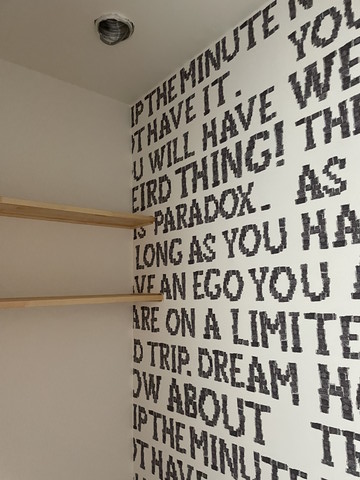 IP THE MINUTE
YOU
OT HAVE IT.
U WILL HAVE WE
EIRD THING! THI
IS PARADOX. AS
LONG AS YOU HA
VE AN EGO YOU
ARE ON A LIMITE
D TRIP. DREAM H
OW ABOUT
IP THE MINUTE
OT HAVE